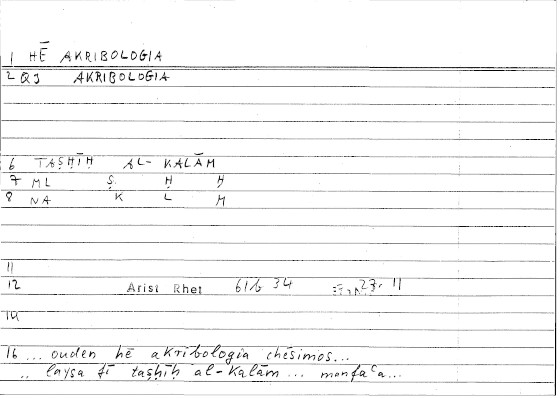 1 HĒ AKRIBOLOGIA
2 QJ AKRIBOLOGIA
6 TAṢḤĪḤ AL- KALĀM
7 ML Ṣ Ḥ Ḥ
8 NA K L M
11
12 Arist Rhet 61b 34 23. 11
14
16 ... ouden hē akribologia chēsimos...
.. laysa fī taṣḥīḥ al-kalām ... manfaʿa...